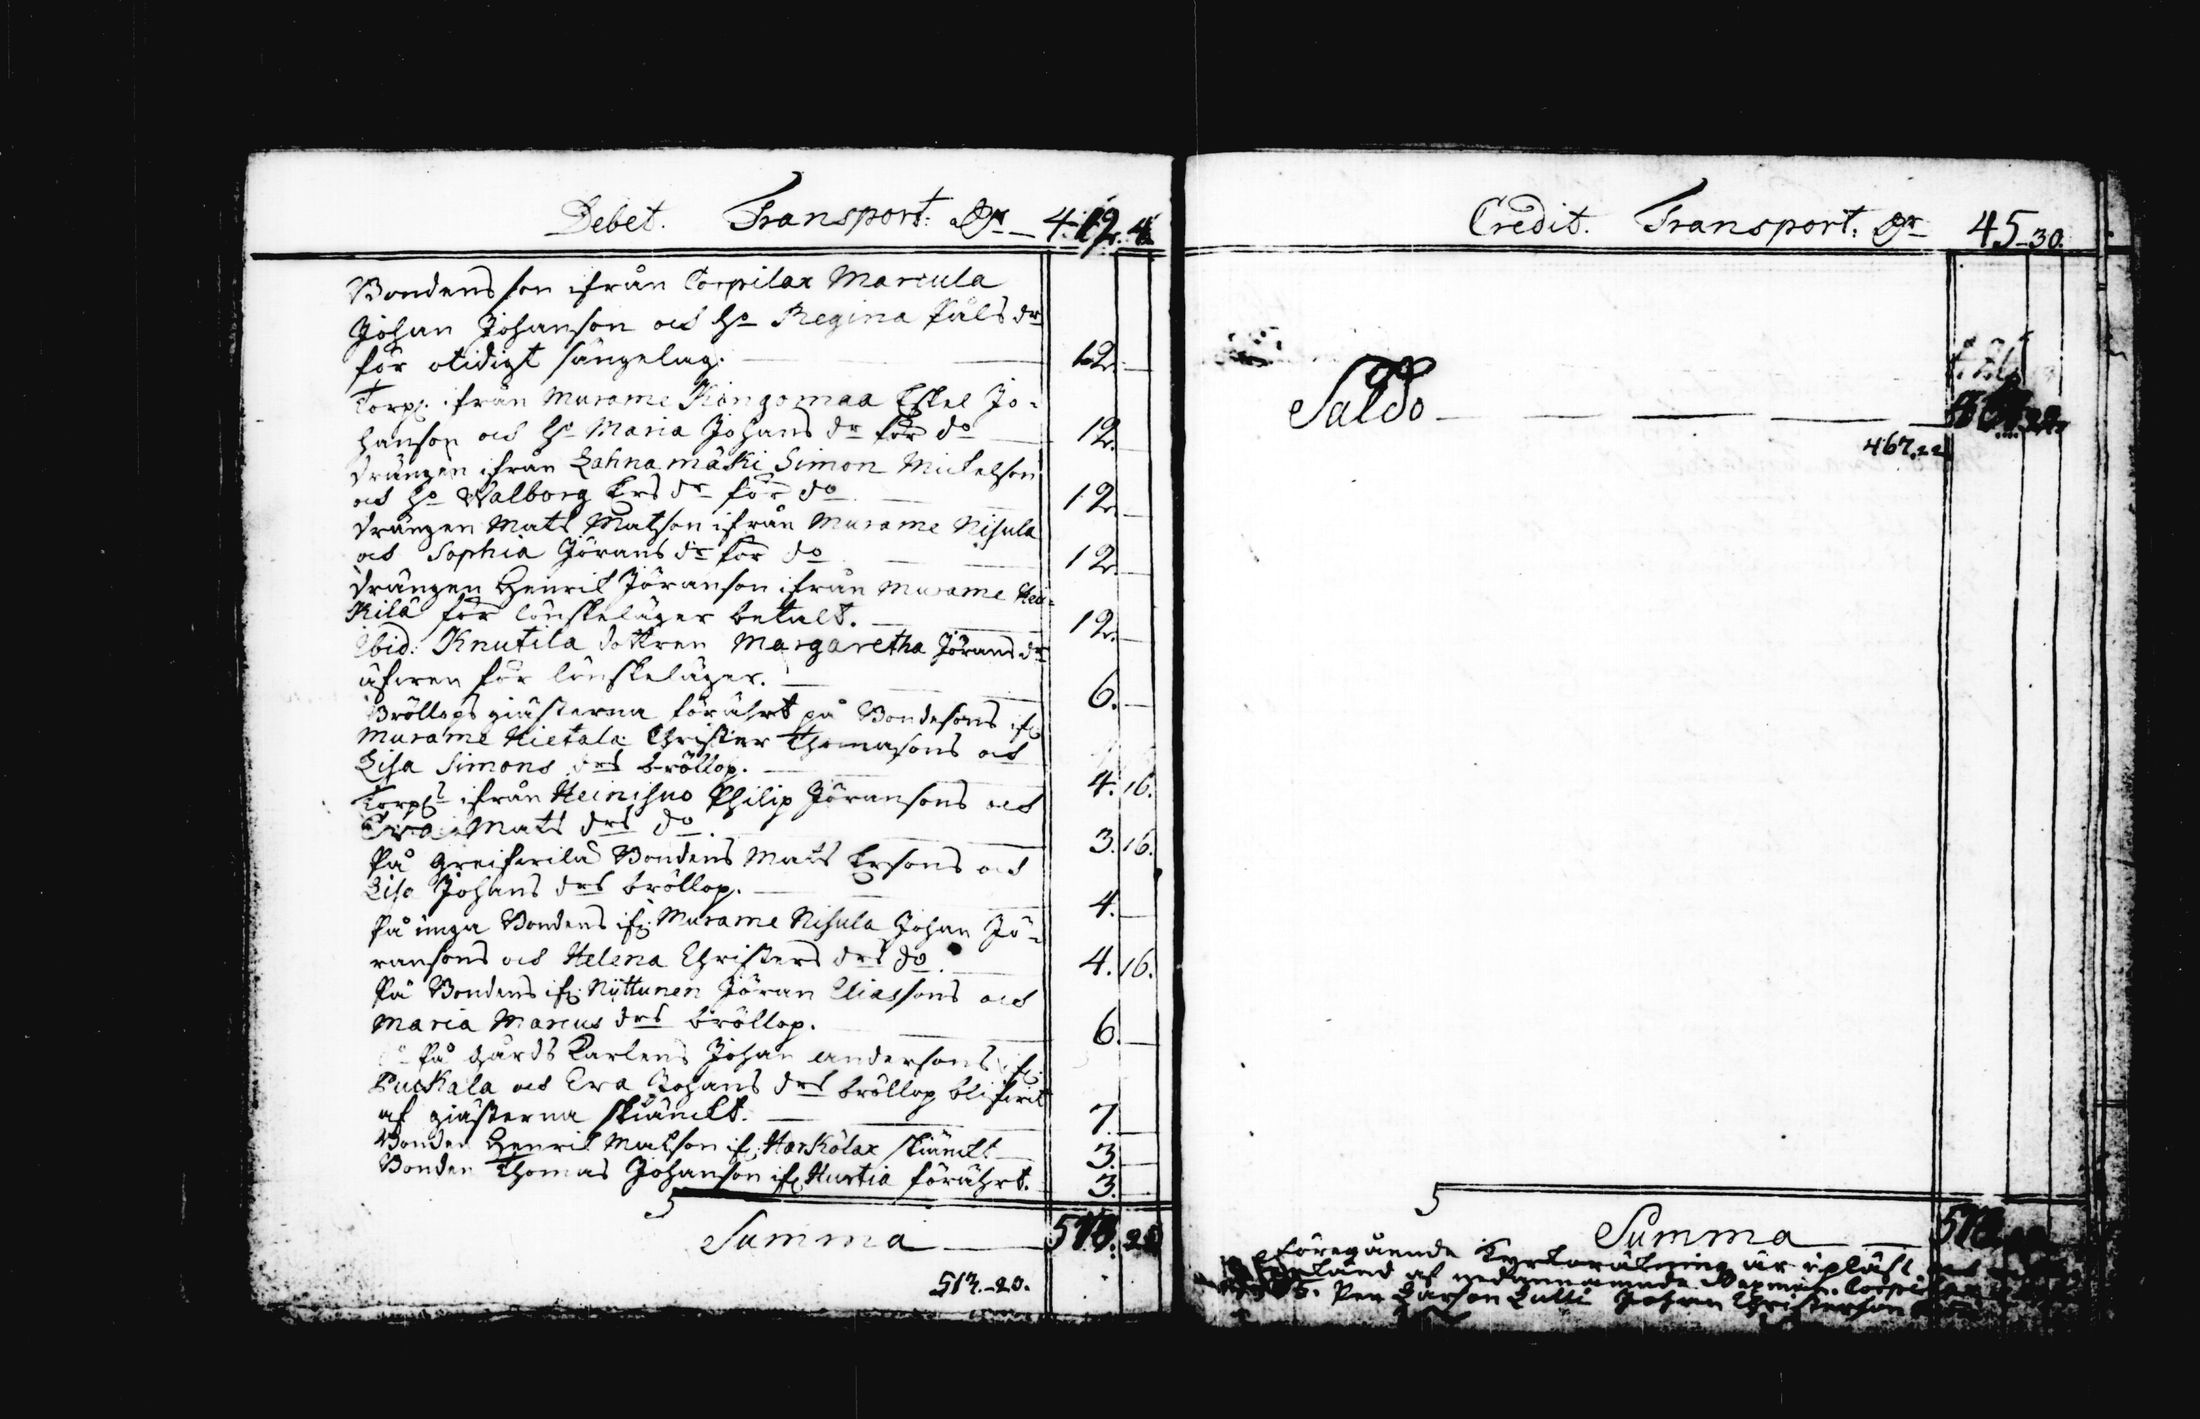 Debet. Transport: Dr 412. 4.
Bondens son ifrån Torpilax Marcula
Johan Johanson och ho Regina Påls dr
för otidigt sängelag. 12.
Torp. ifrån Murame Kangomaa Eskel Jo-
hanson och ho Maria Johans dr för do 12.
Drängen ifrån Lahnamäki Simon Mickelson
och ho Walborg Ers dr för do 12.
Drängen Mats Matson ifrån Murame Nisula
och Sophia Jörans dr för do 12.
Drängen Henrik Jöranson ifrån Murame Hei-
kilä för lönskeläger betalt. 12.
Ibid: Knutila dottren Margaretha Jörans dr
äfwen för lönskeläger. 6.
Bröllops giästerna förährt på Bondesons if:
Murame Hietala Christer Thomasons och
Lisa Simons drs bröllop. 4. 16.
Torp. ifrån Heinisuo Philip Jöransons och
Eva Mats drs do. 3. 16.
På Greifwilä Bondens Mats Ersons och
Lisa Johans drs bröllop. 4.
På unga Bondens if: Murame Nisula Johan Jö-
ransons och Helena Christers drs do. 4. 16.
På Bondens if: Nyttunen Jöran Eliassons och
Maria Marcus drs bröllop. 6.
På gårds Karlens Johan Andersons if:
Puckala och Eva Johans drs bröllop blifwit
af giästerna skiänckt. 7.
Bonden Henrik Matson if: Harkölax skiänckt 3.
Bonden Thomas Johanson if: Hurtia förährt. 3.
Summa 513. 20
513.-20.
Credit. Transport: Dr 45-30.
Saldo
467.22
Summa 513
Föregående Kyrkoräkning är upläst
af nedannämnde
Per Larson Lulli Johan Christerson